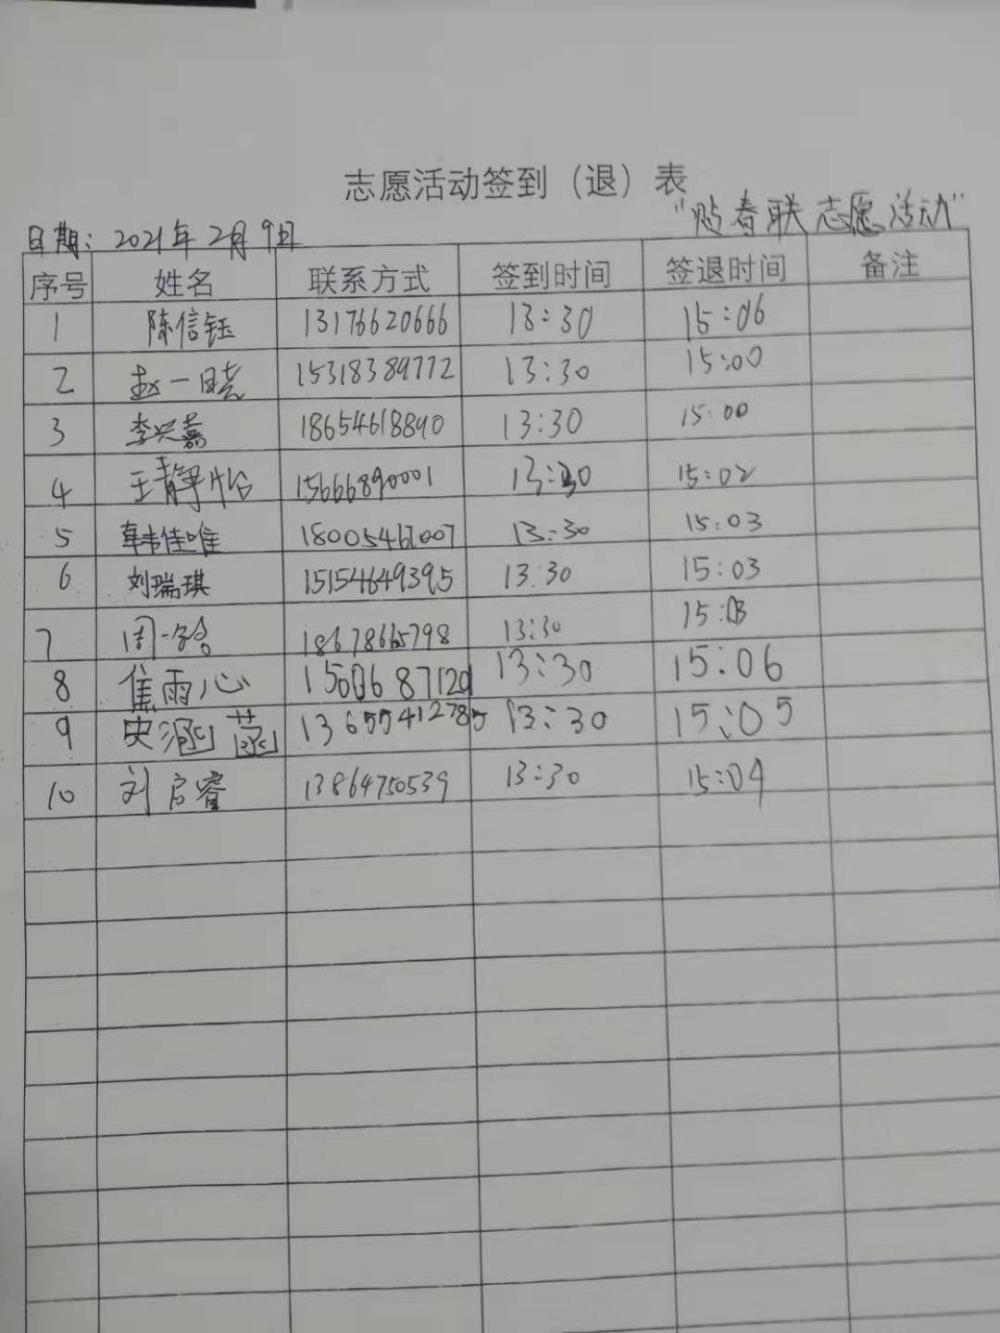 志愿活动签到（退）表
"贴春联志愿活动"
日期：2021年2月9日
序号 姓名 联系方式 签到时间 签退时间 备注
1 陈信钰 13176620666 13:30 15:06
2 赵一晓 15318389772 13:30 15:00
3 李兴嘉 18654618890 13:30 15:00
4 王静怡 15666890001 13:30 15:02
5 韩佳唯 18005461007 13:30 15:03
6 刘瑞琪 15154649395 13:30 15:03
7 周一 18678665798 13:30 15:03
8 焦雨心 13:30 15:06
9 史涵菡 13655412785 13:30 15:05
10 刘启睿 13864750539 13:30 15:04